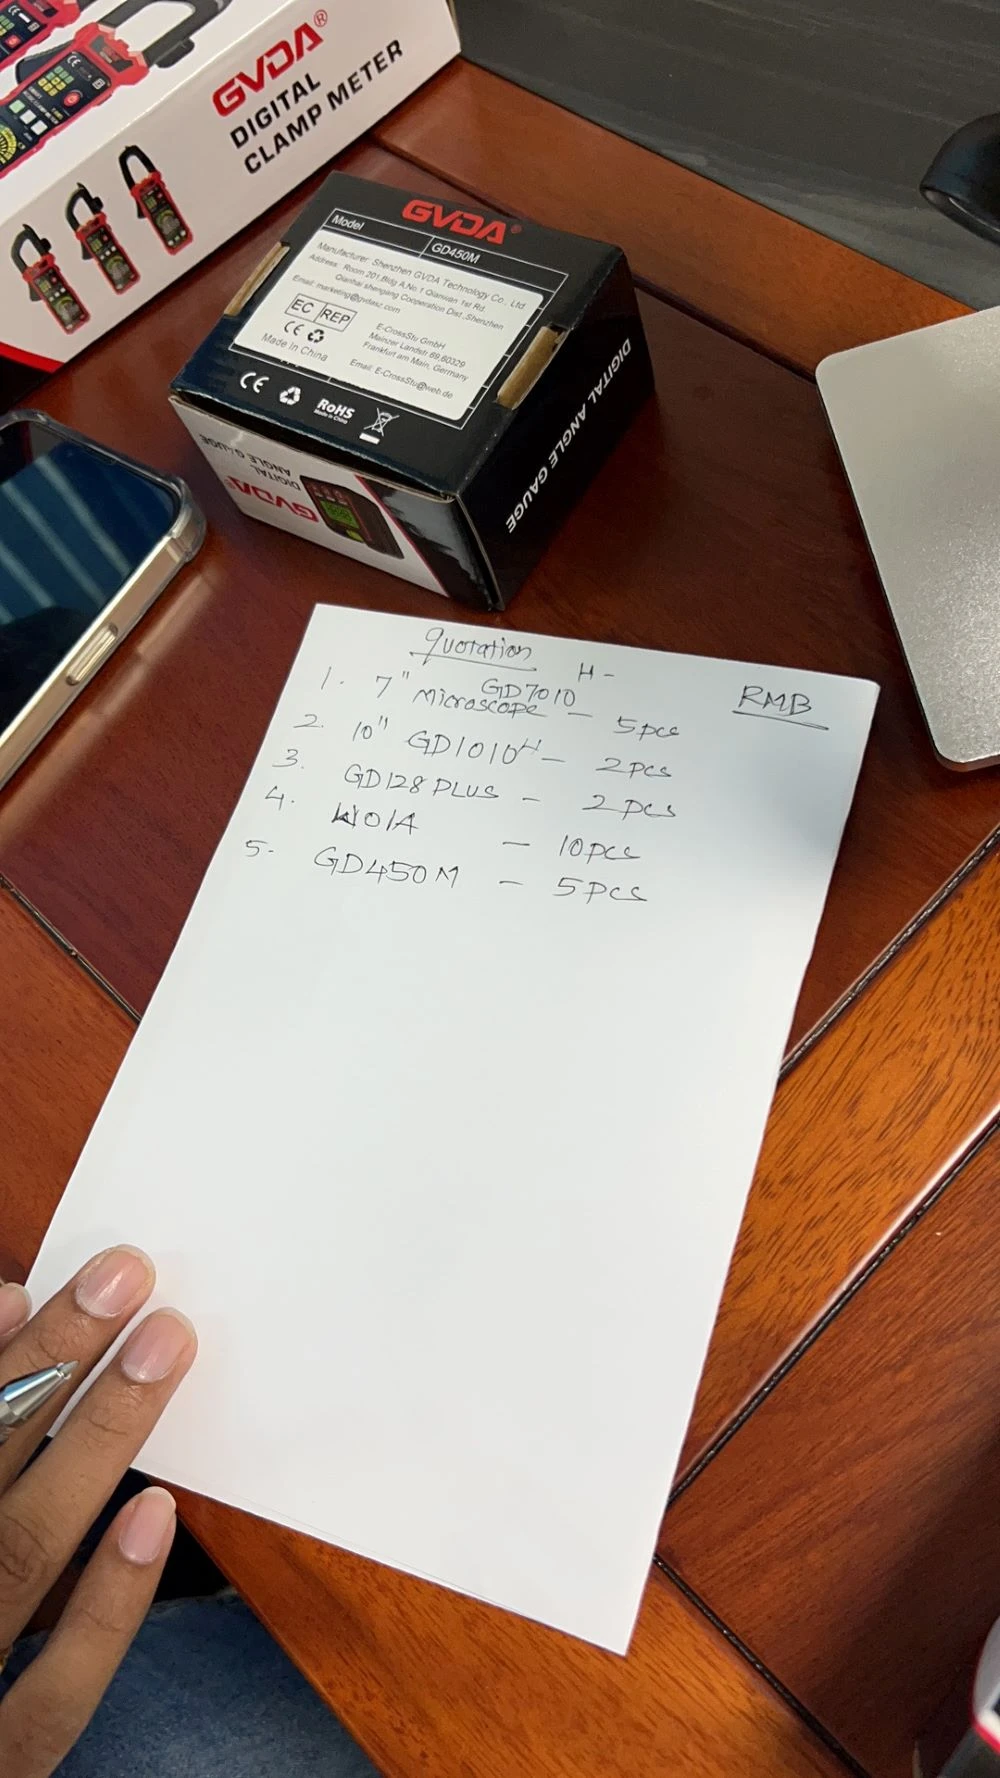 GVDA®
DIGITAL
CLAMP METER
GVDA®
Model GD450M
Manufacturer: Shenzhen GVDA Technology Co., Ltd
Address: Room 201,Bldg A,No.1 Qianwan 1st Rd.
Qianhai shengang Cooperation Dist.,Shenzhen
Email: marketing@gvdasz.com
EC REP
E-CrossStu GmbH
Mainzer Landstr.69,60329
Frankfurt am Main, Germany
CE
Made In China
Email: E-CrossStu@web.de
CE RoHS
Made in China
DIGITAL ANGLE GAUGE
GVDA®
DIGITAL
ANGLE GAUGE
Quotation
H-
RMB
1. 7" Microscope GD7010 - 5pcs
2. 10" GD1010H - 2pcs
3. GD128 PLUS - 2pcs
4. 01A - 10pcs
5. GD450M - 5pcs